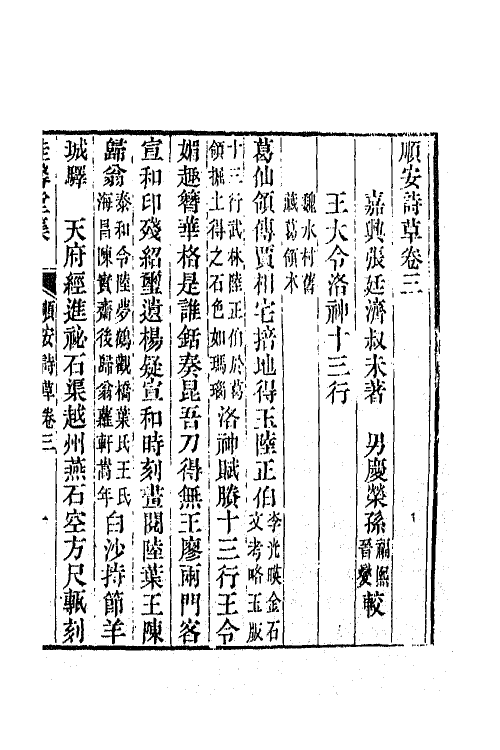 順安詩草卷三
嘉興張廷濟叔未著　男慶榮孫福熙晉燮較
王大令洛神十三行
魏水村舊藏葛嶺本
葛仙領傳賈相宅掊地得玉陸正伯李光暎金石文考略玉版
十三行武林陸正伯於葛領掘土得之石色如瑪瑙洛神賦賸十三行王令
媚趣簪華格是誰銛奏昆吾刀得無王廖兩門客
宣和印殘紹璽遺楊疑宣和時刻薈閱陸葉王陳
歸翁泰和令陸夢鶴觀橋葉氏王氏海昌陳寅齋後歸翁蘿軒嵩年白沙持節羊
城驛　天府經進祕石渠越州燕石空方尺輒刻
桂馨堂集　順安詩草卷三　一